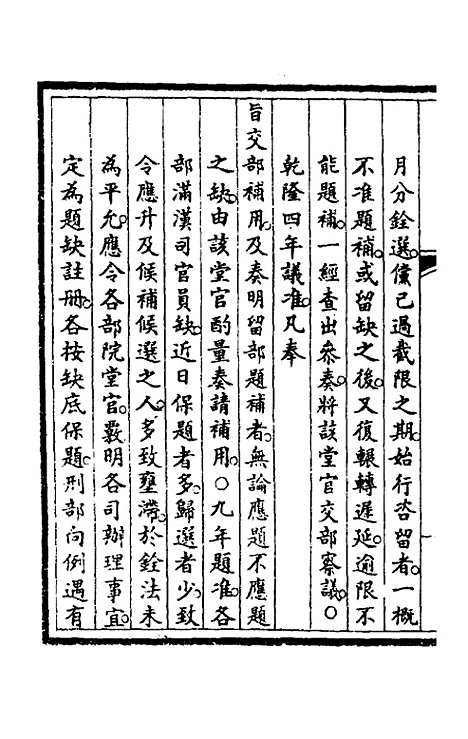 月分銓選。儻已過截限之期。始行咨留者。一概
不准題補。或留缺之後。又復輾轉遲延。逾限不
能題補。一經查出叅奏。將該堂官交部察議。○
乾隆四年議准。凡奉
旨交部補用。及奏明留部題補者。無論應題不應題
之缺。由該堂官酌量奏請補用。○九年題准。各
部滿漢司官員缺。近日保題者多。歸選者少。致
令應升及候補候選之人。多致壅滯。於銓法未
為平允。應令各部院堂官。覈明各司辦理事宜。
定為題缺註冊。各按缺底保題。刑部向例遇有